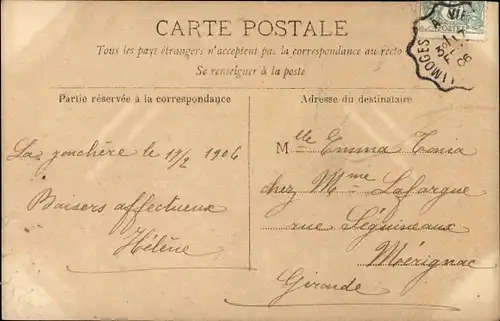 CARTE POSTALE
Tous les pays étrangers n'acceptent pas la correspondance au recto
Se renseigner à la poste
Partie réservée à la correspondance
Adresse du destinataire
LIMOGES A
06
La jonchère le 17/2 1906
Baisers affectueux
Hélène
Mlle Emma Tonia
chez Mme Lafargue
rue Séguineaux
Mérignac
Gironde